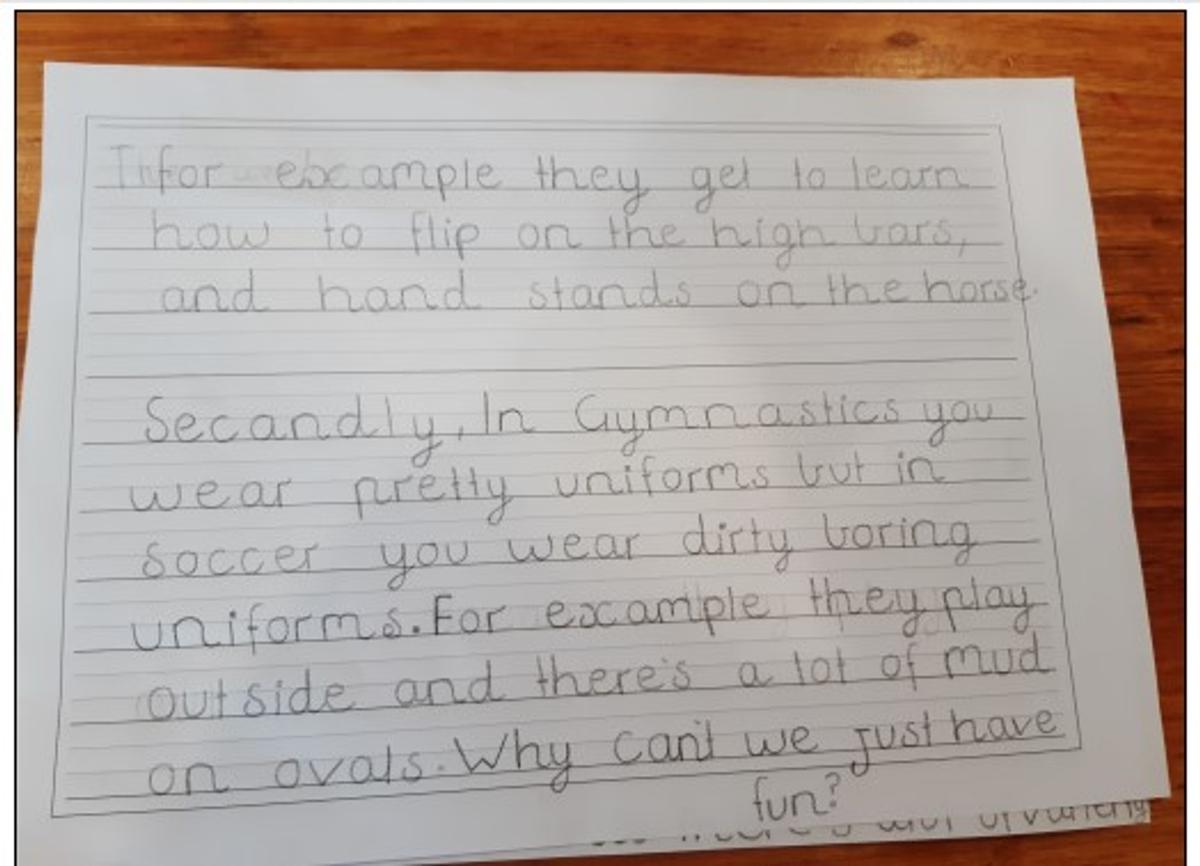 for excample they get to learn
how to flip on the high bars,
and hand stands on the horse.
Secandly, In Gymnastics you
wear pretty uniforms but in
soccer you wear dirty boring
uniforms. For example they play
outside and there's a lot of mud
on ovals. Why can't we just have
fun?